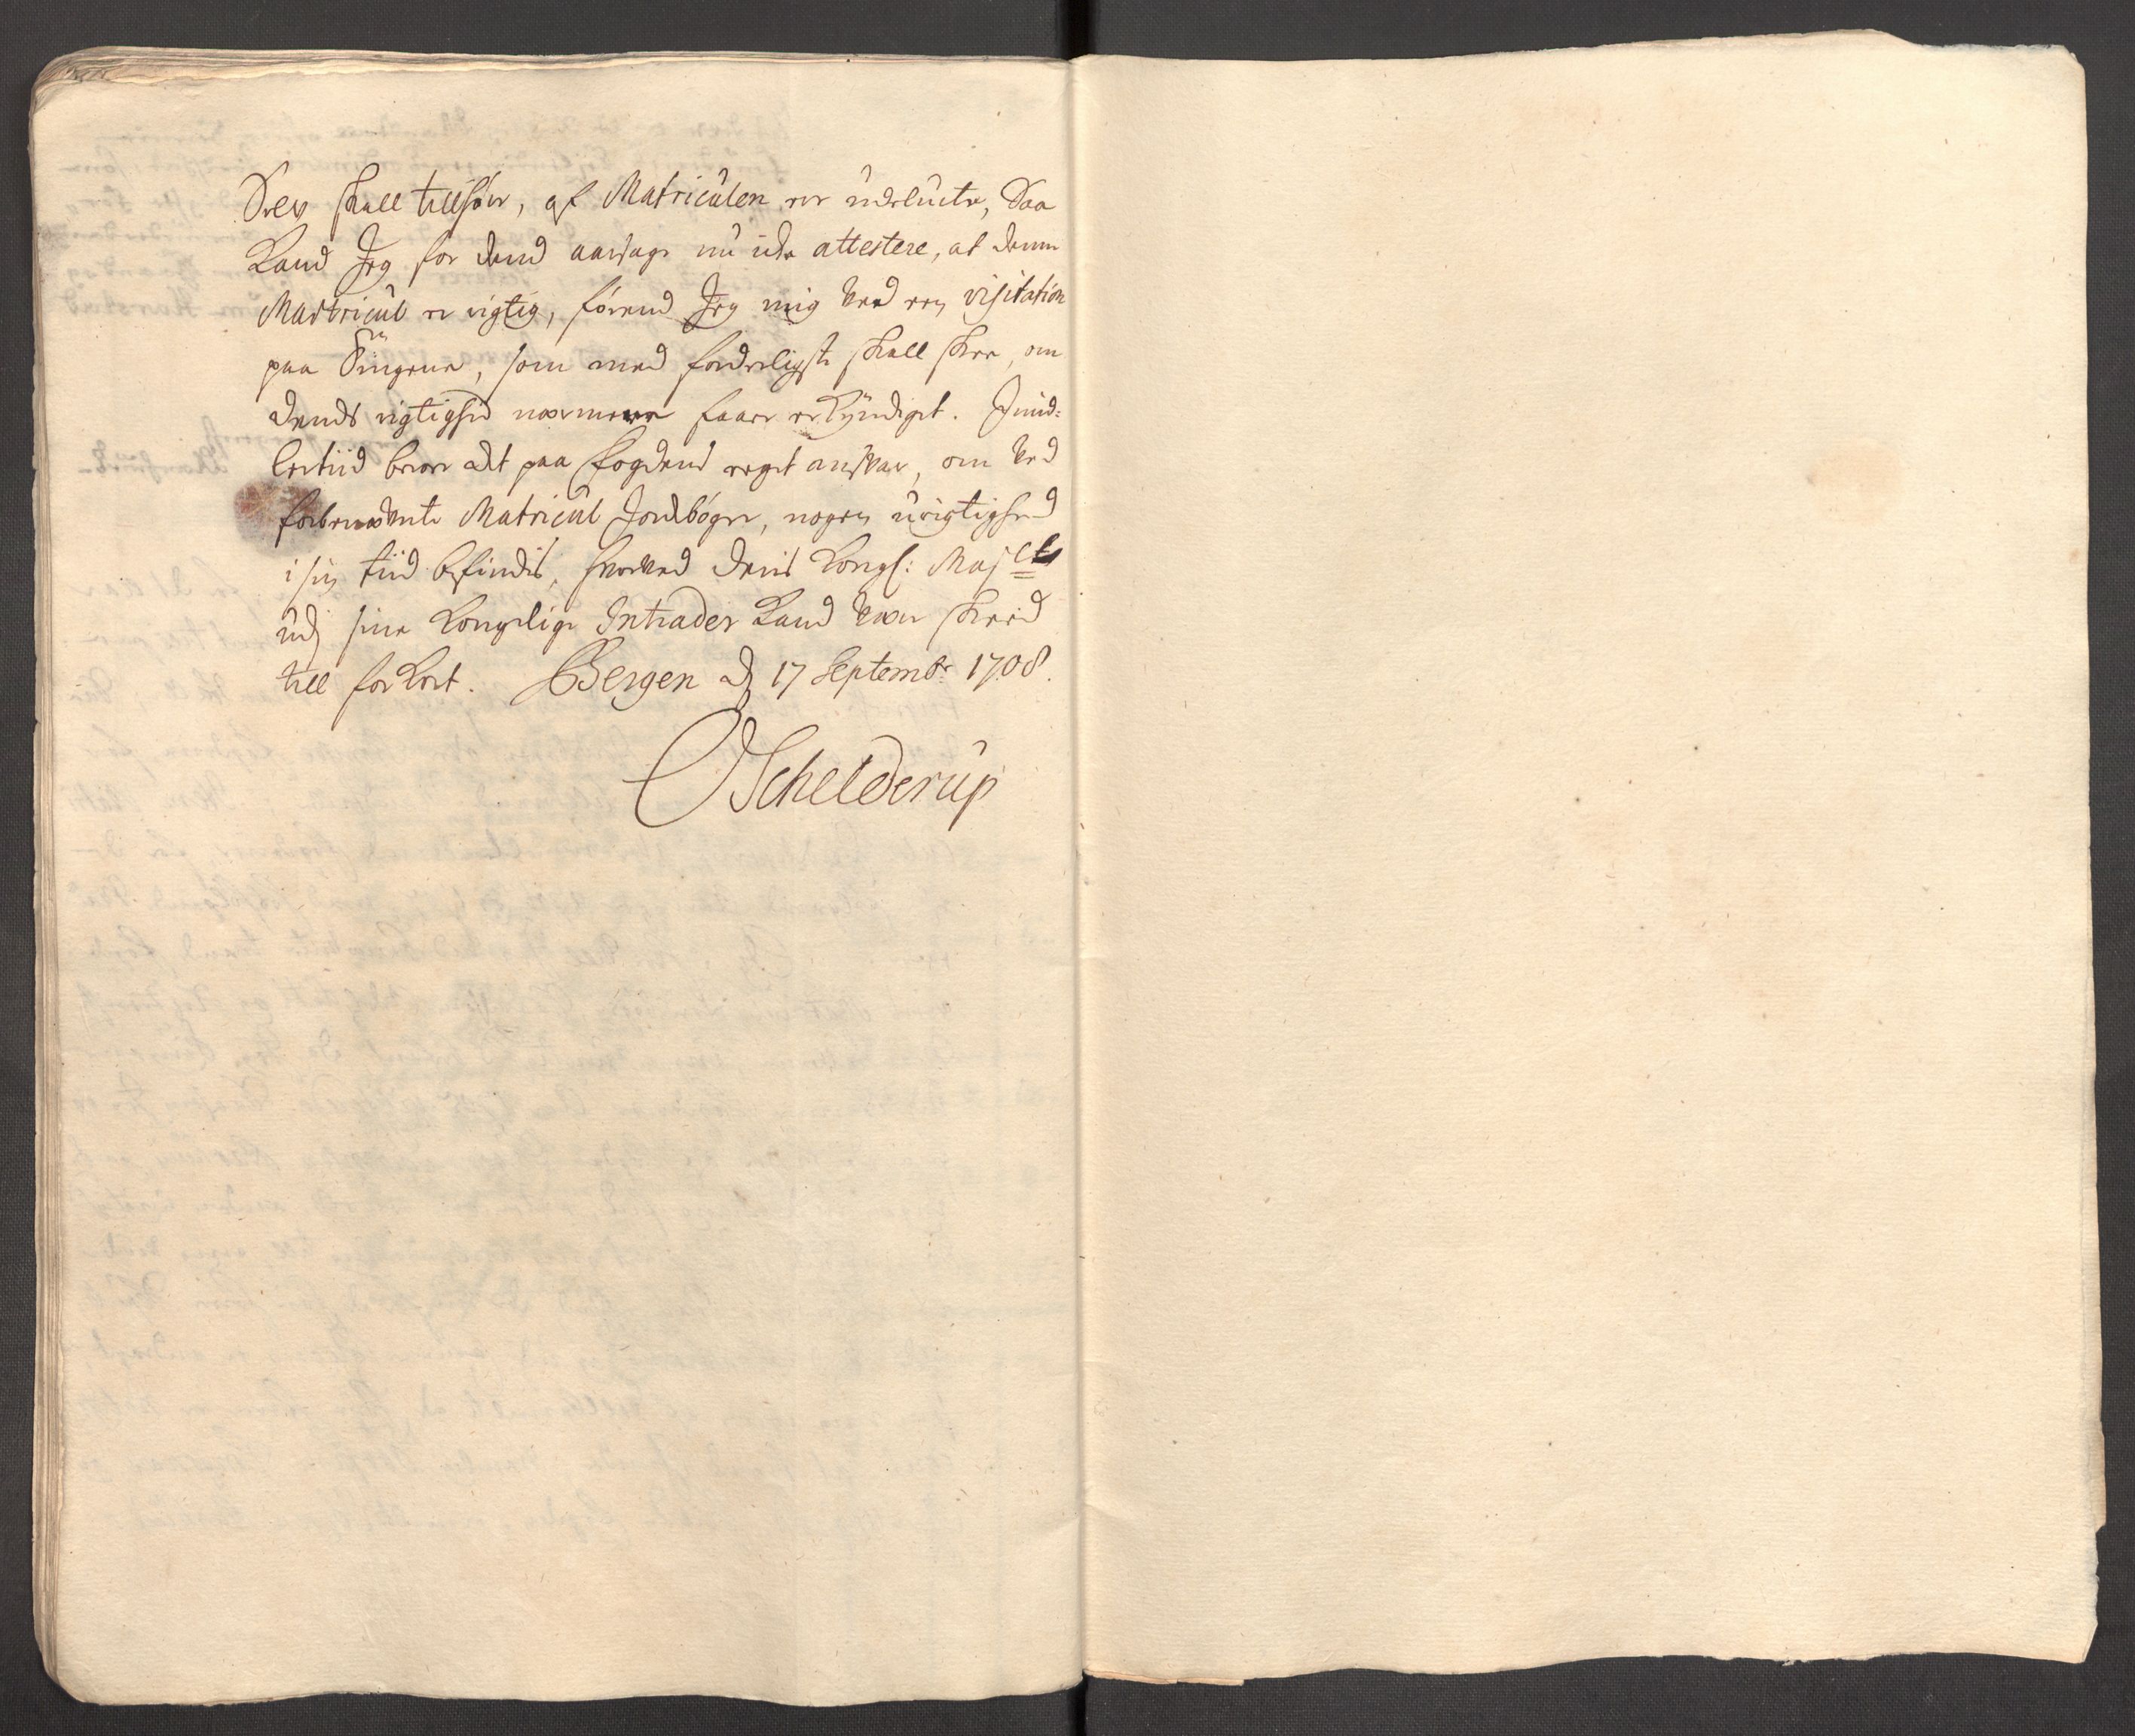 Drev skall tillhøre, af Matriculen er udelucte, Saa
Kand Jeg for dend aarsage nu iche attestere, at denne
Matricul er rigtig, førend Jeg mig ved een visitation
paa Tingene, som med forderligste skall skee, om
dends rigtighed nærmere faaer erkyndiget. Imid-
lertiid beroer alt paa Fogdens eeget ansvar, om ved
forbenævnte Matricul Jordbøger, nogen urigtighed
i sin tiid befindis, hvorved Deris Kongl: Majets
udj sine Kongelige Intrader Kand være skeed
till forkort. Bergen d 17 Septembr 1708.
OSchelderup